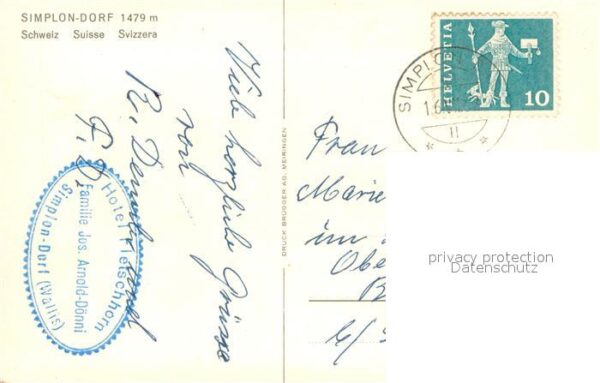 SIMPLON-DORF 1479 m
Schweiz Suisse Svizzera
Viele herzliche Grüsse
von
F. D.
Hotel Fletschhorn
Familie Jos. Arnold-Dönni
Simplon-Dorf (Wallis)
DRUCK BRÜGGER AG, MEIRINGEN
HELVETIA
10
SIMPLON
Frau
Marie
im
Obe
privacy protection
Datenschutz